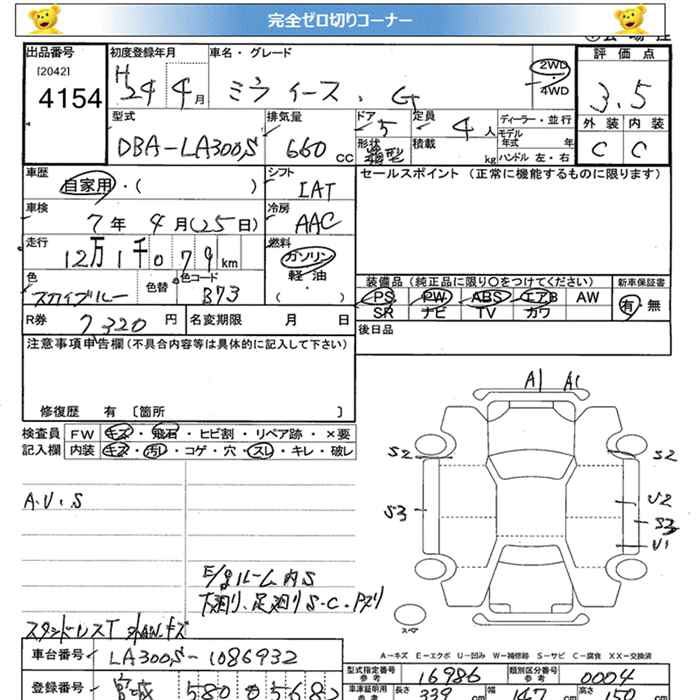 完全ゼロ切りコーナー
出品番号 初度登録年月 車名・グレード 評価点
[2042] 2WD
4154 H24年 4月 ミライース . G 4WD 3.5
型式 排気量 ドア 定員 ディーラー・並行 外装 内装
DBA-LA300S 660cc 5 4人 モデル年式 年 C C
形状 箱型 積載 kg ハンドル 左・右
車歴 シフト セールスポイント (正常に機能するものに限ります)
自家用・( ) IAT
車検 冷房
7年 4月(25日) AAC
走行 燃料
12万1千079km ガソリン・
軽油・
色 色替 色コード 装備品(純正品に限り〇をつけてください) 新車保証書
スカイブルー B73 ( ) PS PW ABS エアB AW 有・無
SR ナビ TV カワ
R券 7320円 名変期限 月 日 後日品
注意事項申告欄(不具合内容等は具体的に記入して下さい)
修復歴 有 [箇所 ]
検査員 FW キズ・飛石・ヒビ割・リペア跡・×要
記入欄 内装 キズ・汚レ・コゲ・穴・スレ・キレ・破レ
A1 A1
S2 S2
A.U.S
S3 U2
S3
U1
E/gルーム内S
下廻り、足廻りS.C.Pズリ
スペア
A-キズ E-エクボ U-凹み W-補修跡 S-サビ C-腐食 XX-交換済
車台番号 LA300S-1086932
型式指定番号 参考 16986 類別区分番号 参考 0004
登録番号 宮城 580
車庫証明用 参考 長さ 339 cm 幅 147 cm 高さ 150 cm